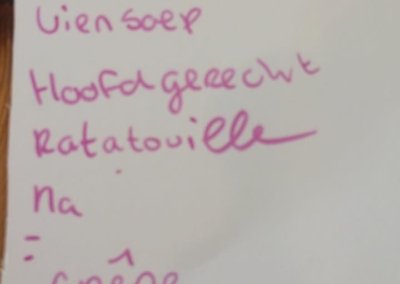 Uiensoep
Hoofdgerecht
Ratatouille
Na
:
crêpe